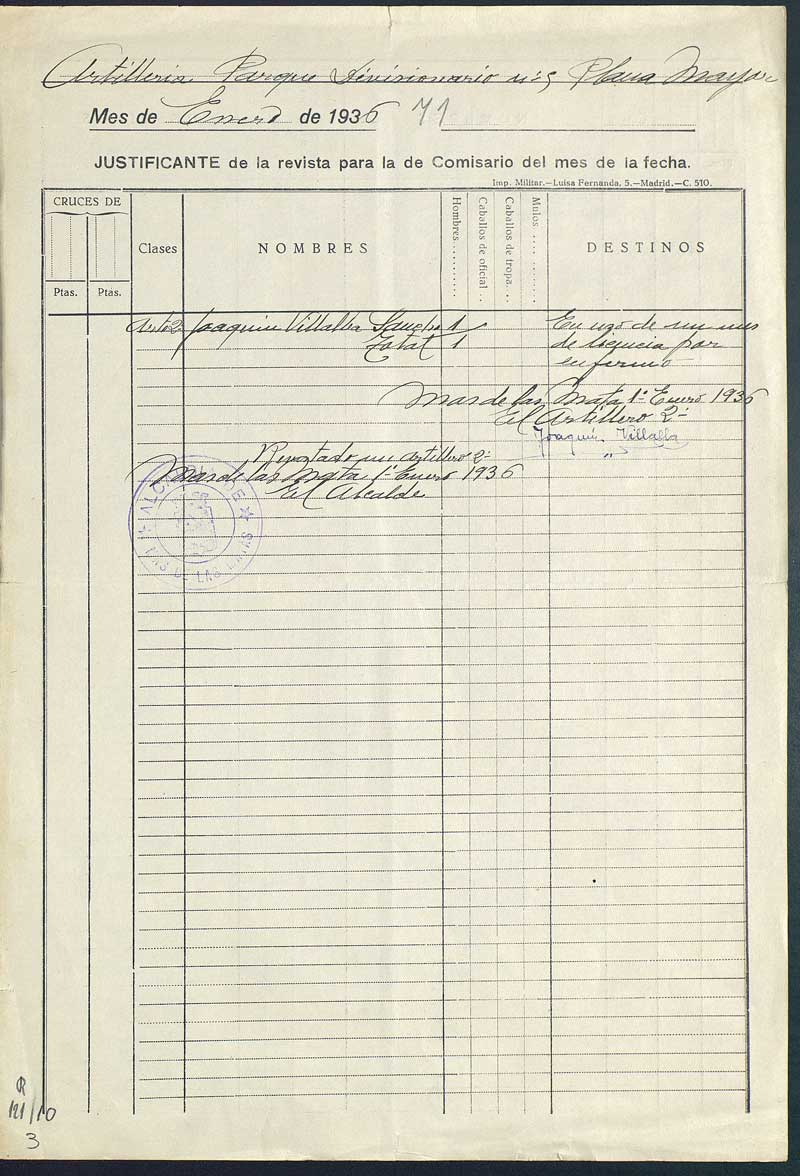 Artilleria Parque Divisionario nº 5 Plana Mayor
Mes de Enero de 1936 71
JUSTIFICANTE de la revista para la de Comisario del mes de la fecha.
Imp. Militar.—Luisa Fernanda, 5.—Madrid.—C. 510.
CRUCES DE
Ptas. Ptas.
Clases
NOMBRES
Hombres
Caballos de oficial
Caballos de tropa
Mulos
DESTINOS
Arto 2º Joaquin Villalba Sancho 1 En uso de un mes
Total 1 de licencia por
enfermo
Mas de las Mata 1º Enero 1936
El Artillero 2º
Joaquin Villalba
Revistado un artillero 2º
Mas de las Mata 1º Enero 1936
El Alcalde
ALCALDE
MAS DE LAS MATAS
R
121/10
3